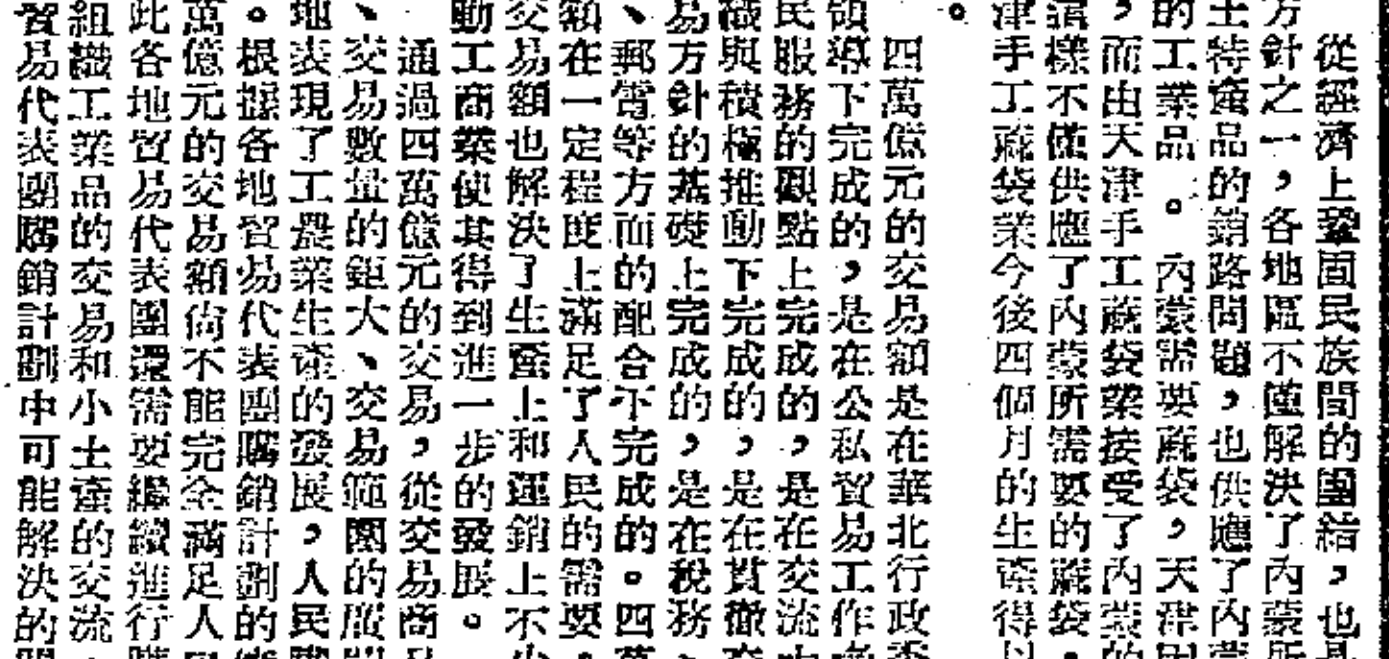 從經濟上鞏固民族間的團結，也是
方針之一，各地區不僅解決了內蒙所
土特產品的銷路問題，也供應了內蒙
的工業品。內蒙需要蔴袋，天津因
，而由天津手工蔴袋業接受了內蒙的
這樣不僅供應了內蒙所需要的蔴袋，
津手工蔴袋業今後四個月的生產得以
。
四萬億元的交易額是在華北行政委
領導下完成的，是在公私貿易工作
民服務的觀點上完成的，是在交流
織與積極推動下完成的，是在貫徹交
易方針的基礎上完成的，是在稅務、
、郵電等方面的配合下完成的。四萬
額在一定程度上滿足了人民的需要
交易額也解決了生產上和運銷上不少
動工商業使其得到進一步的發展。
通過四萬億元的交易，從交易商品
、交易數量的鉅大、交易範圍的廣
地表現了工農業生產的發展，人民
。根據各地貿易代表團購銷計劃的
萬億元的交易額尚不能完全滿足人
此各地貿易代表團還需要繼續進行
組織工業品的交易和小土產的交流，
貿易代表團購銷計劃中可能解決的問